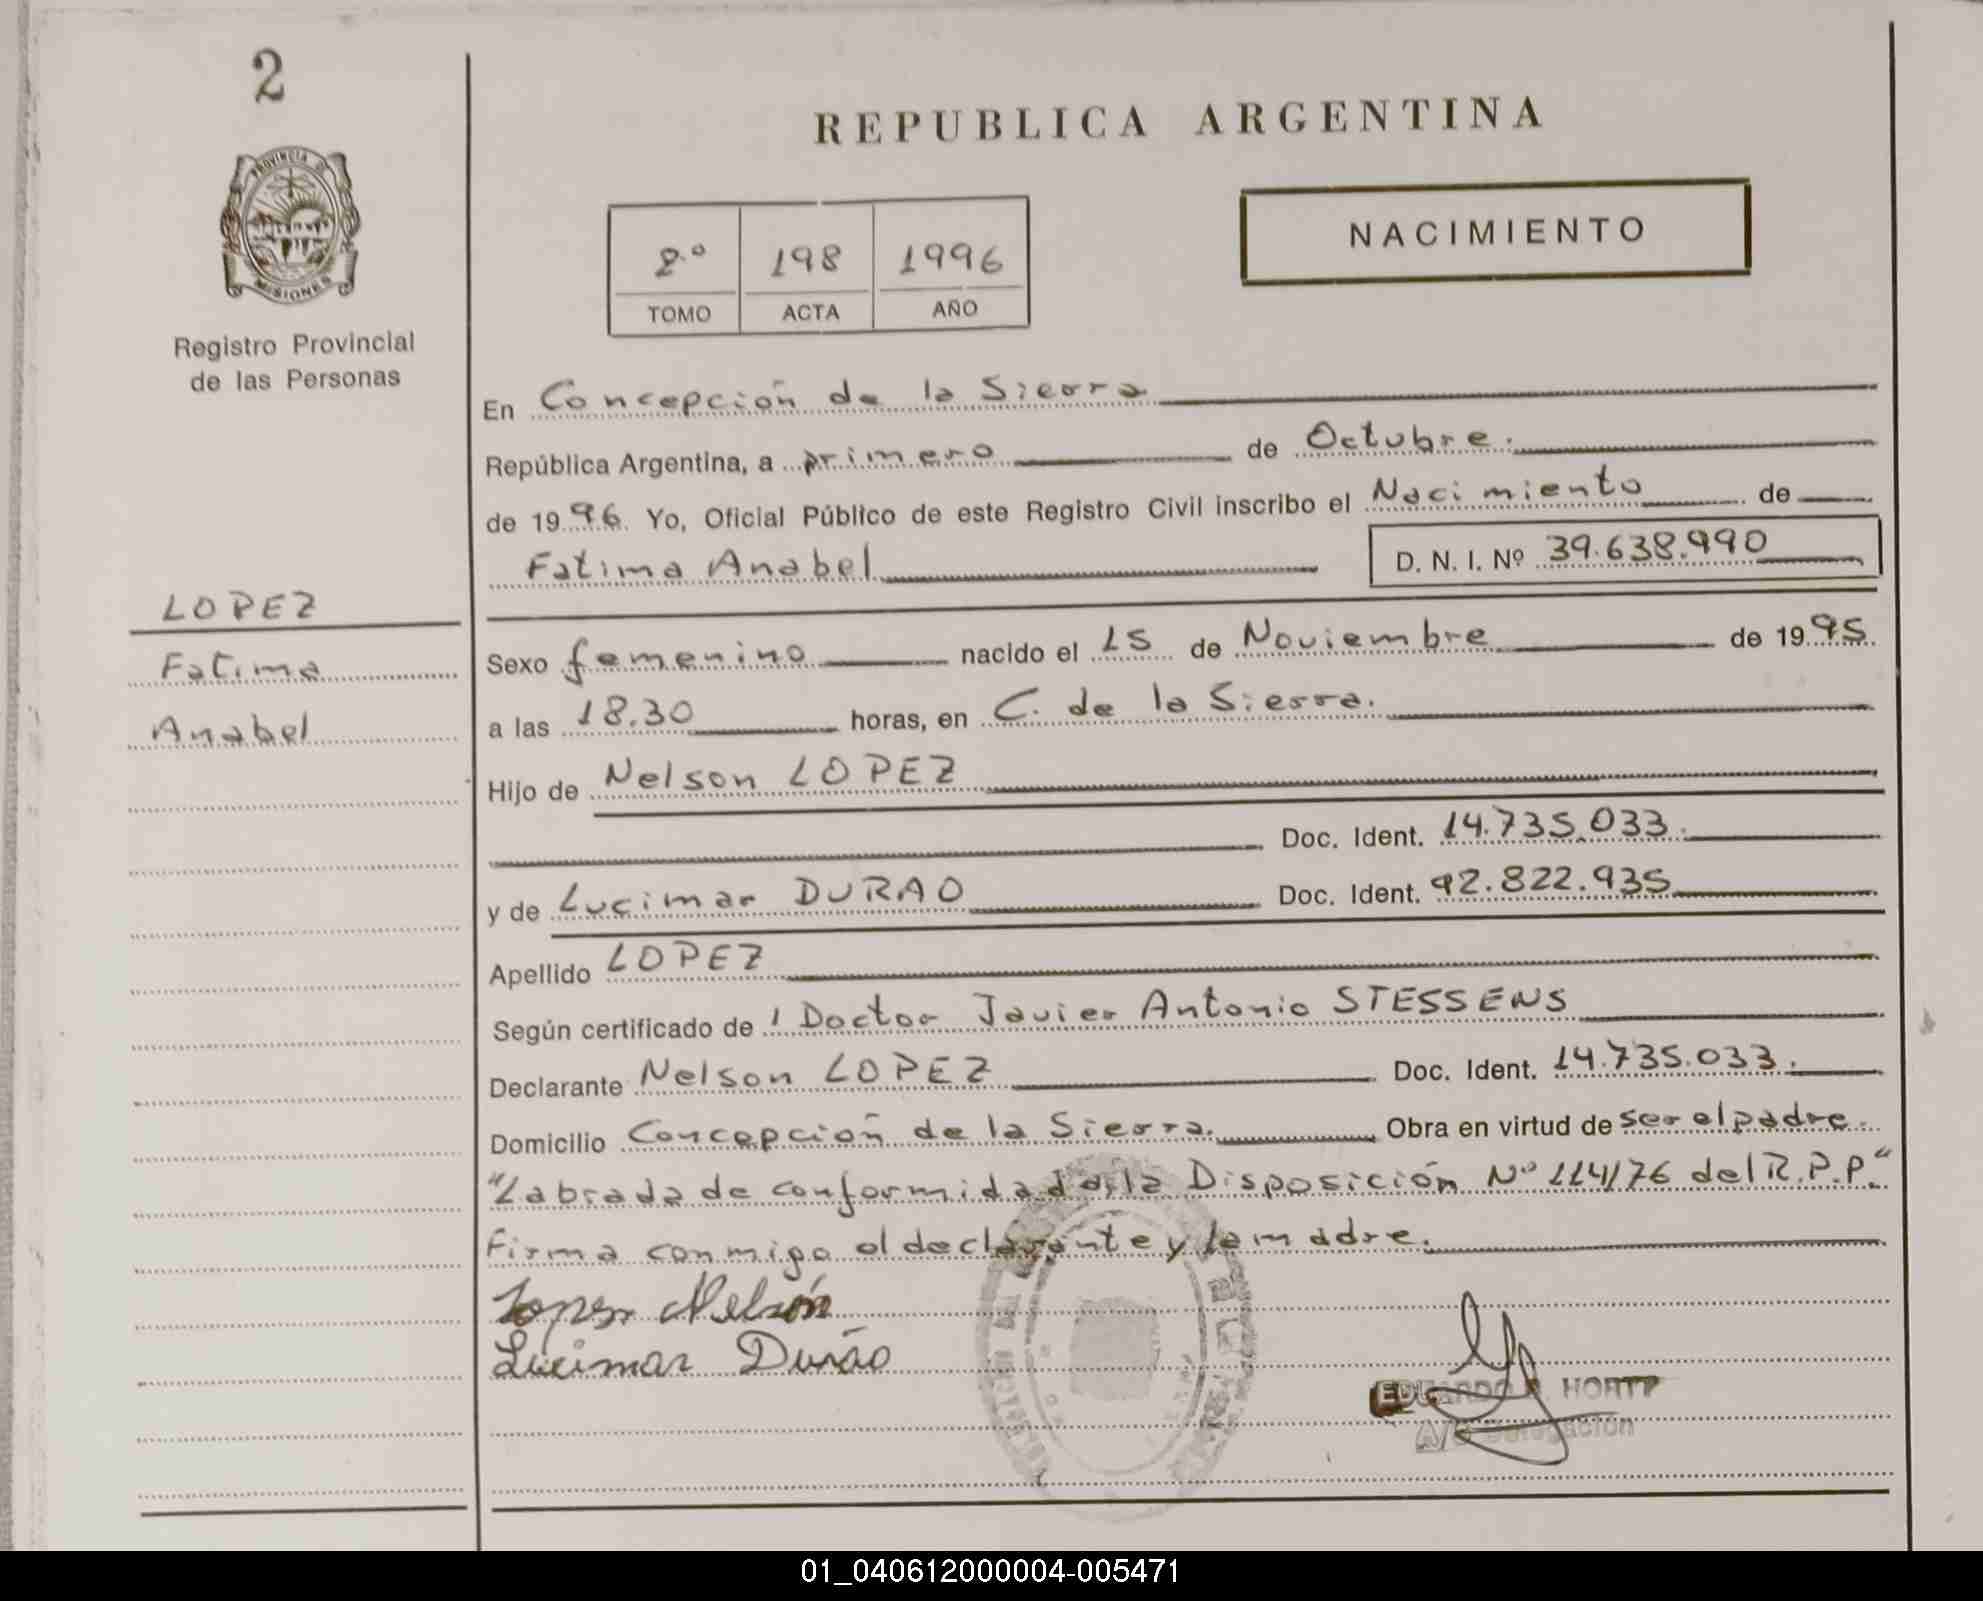 2
PROVINCIA DE
MISIONES
Registro Provincial
de las Personas
LOPEZ
Fatima
Anabel
REPUBLICA ARGENTINA
2º 198 1996
TOMO ACTA AÑO
NACIMIENTO
En Concepción de la Sierra
República Argentina, a primero de Octubre.
de 1996. Yo, Oficial Público de este Registro Civil inscribo el Nacimiento de
Fatima Anabel D. N. I. Nº 39.638.990
Sexo femenino nacido el 15 de Noviembre de 1995
a las 18.30 horas, en C. de la Sierra.
Hijo de Nelson LOPEZ
Doc. Ident. 14.735.033.
y de Lucimar DURAO Doc. Ident. 92.822.935
Apellido LOPEZ
Según certificado de l Doctor Javier Antonio STESSENS
Declarante Nelson LOPEZ Doc. Ident. 14.735.033.
Domicilio Concepción de la Sierra. Obra en virtud de ser el padre.
"Labrada de conformidad a la Disposición Nº 114/76 del R.P.P."
Firma conmigo el declarante y la madre.
Lopez Nelsón
Lucimar Durão
EDUARDO HORTT
A/C Delegación
01_040612000004-005471